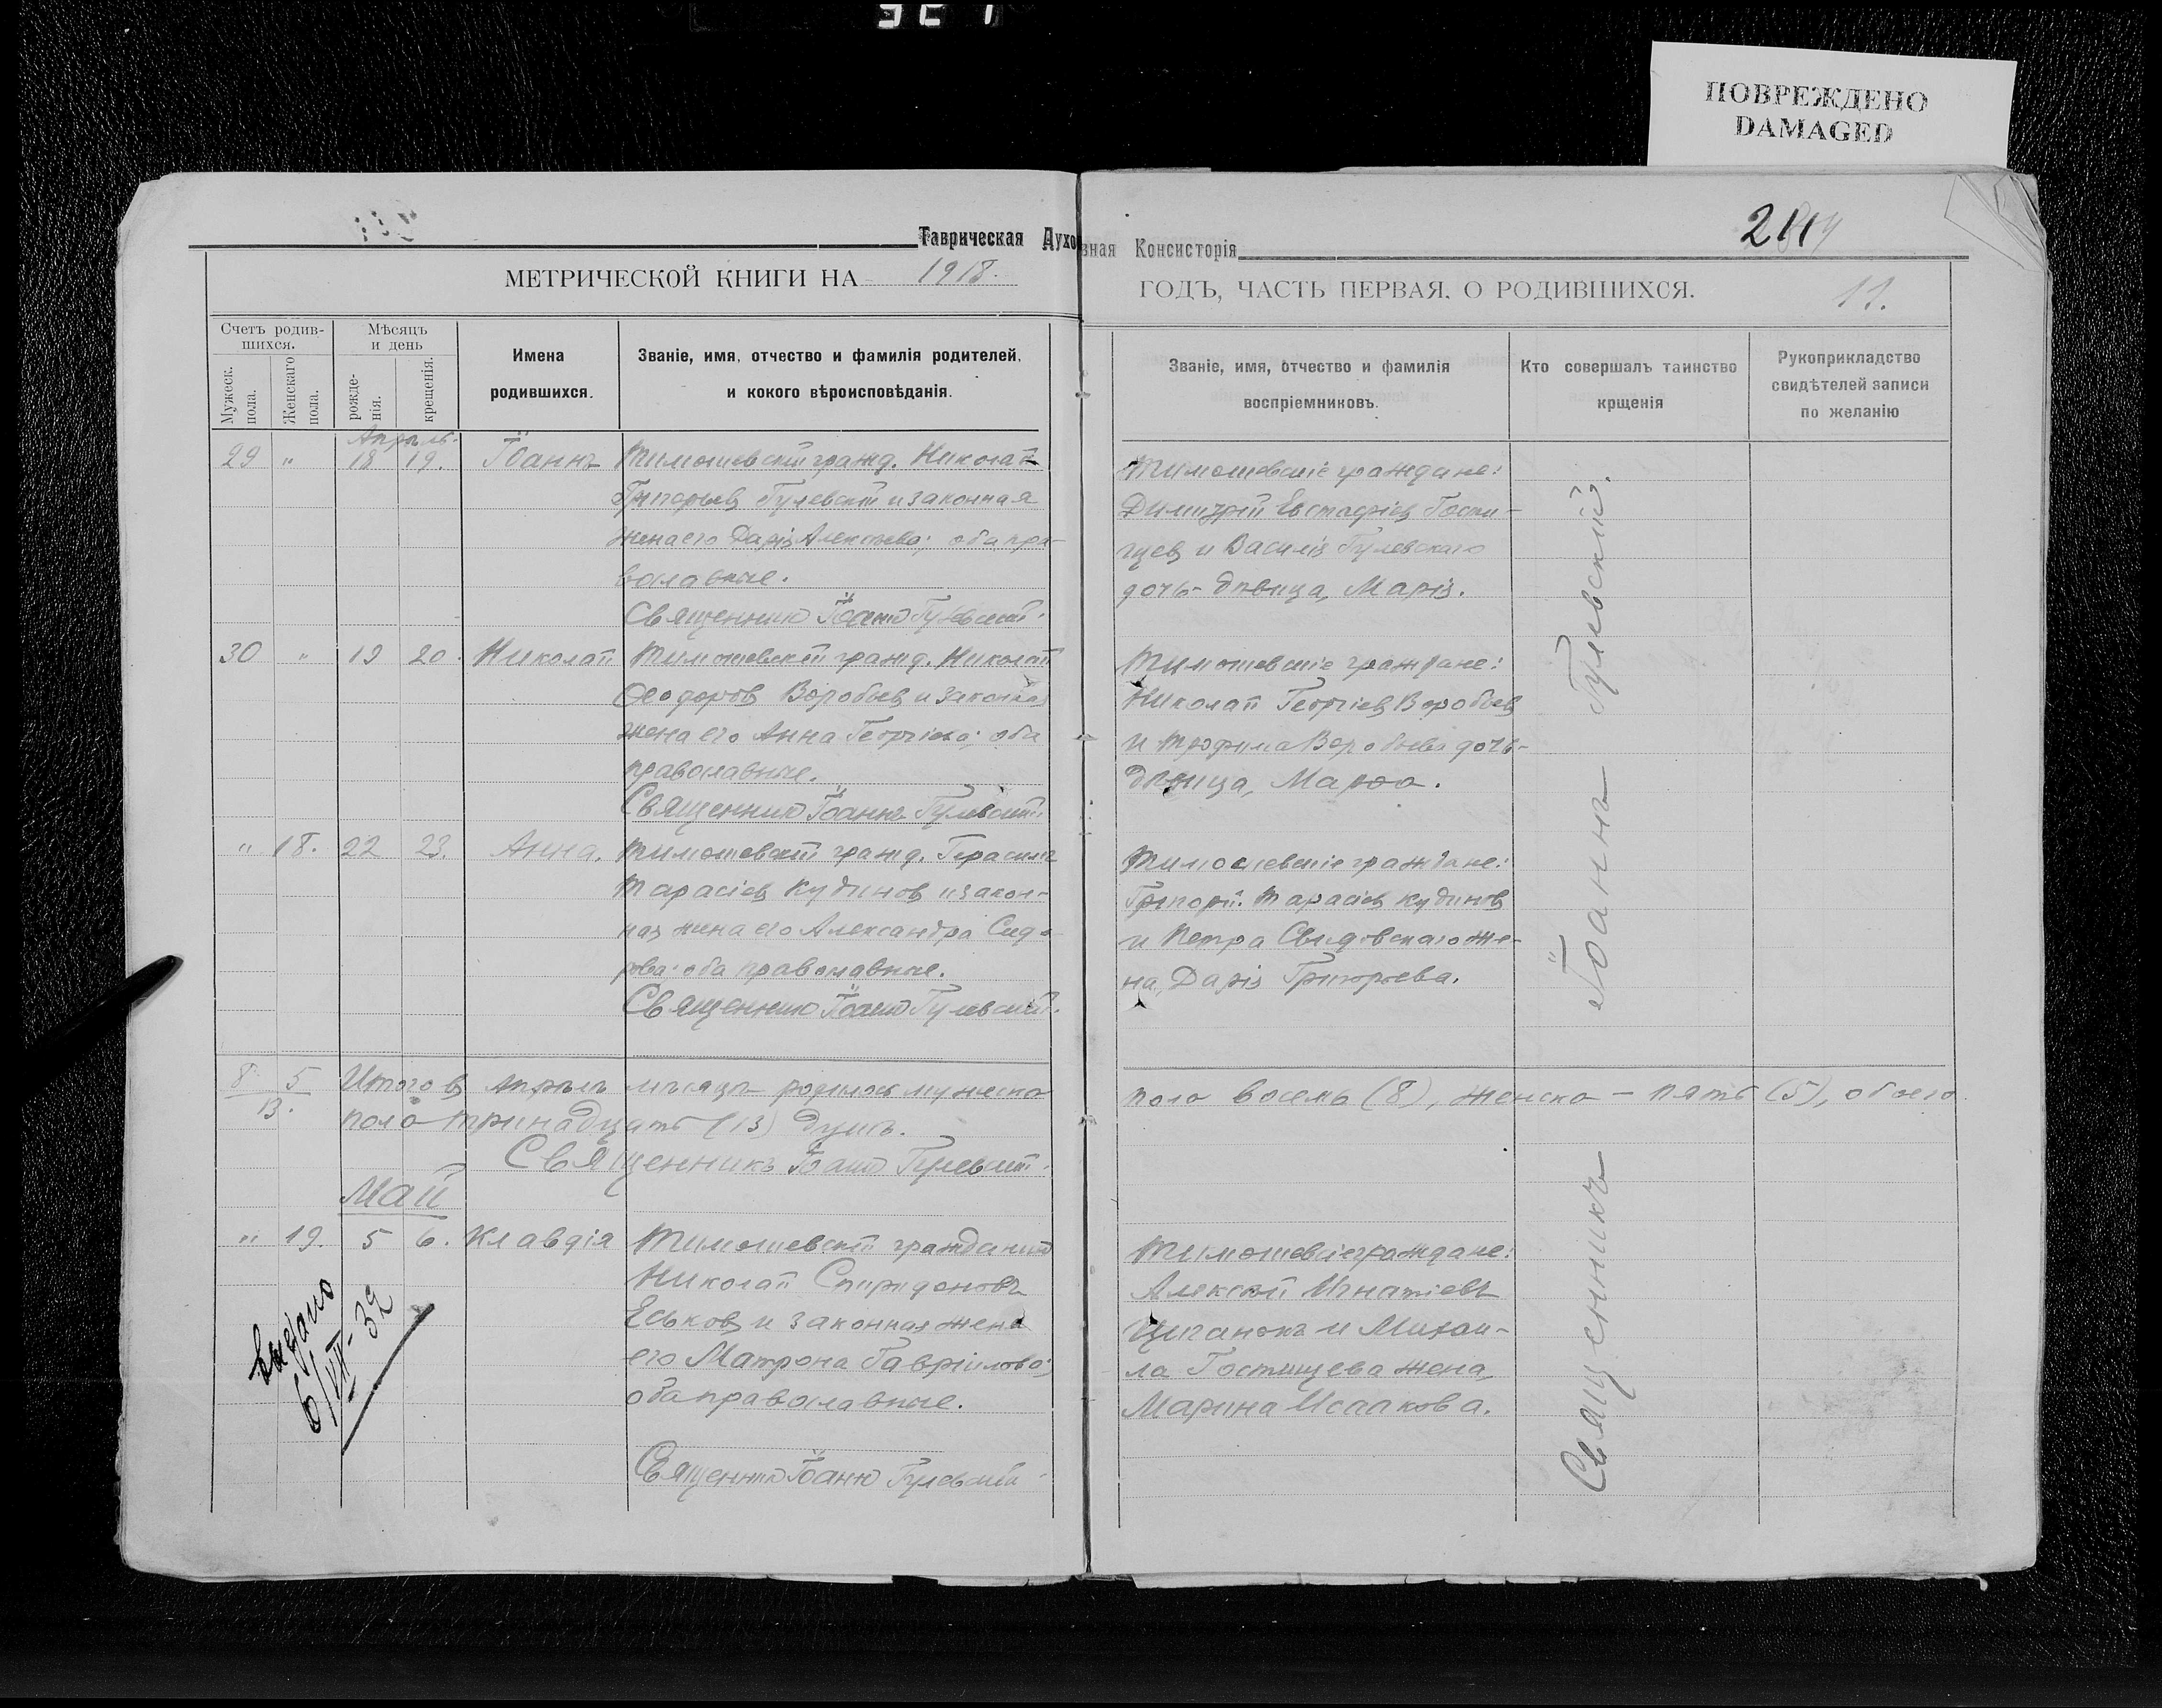 ПОВРЕЖДЕНО
DAMAGED
Таврическая Духовная Консисторія
МЕТРИЧЕСКОЙ КНИГИ НА 1918.
Счетъ родив-
шихся.
Мужеск.
пола.
Женскаго
пола.
Мѣсяцъ
и день
рожде-
нія.
крещенія.
Имена
родившихся.
Званіе, имя, отчество и фамилія родителей,
и кокого вѣроисповѣданія.
Апрѣль.
29 " 18 19. Іоаннъ Тимошевскій гражд. Николай
Григорьев Гулевскій и законная
жена его Дарія Алексѣева; оба пра-
вославные.
Священник Іоанн Гулевскій.
30 " 19 20. Николай Тимошевскій гражд. Николай
Ѳеодоров Воробьев и законная
жена его Анна Георгіева; оба
православные.
Священник Іоаннъ Гулевскій.
" 18. 22 23. Анна. Тимошевскій гражд. Герасимъ
Тарасіев Кудинов и закон-
ная жена его Александра Сидо-
рова; оба православные.
Священник Іоанн Гулевскій.
8 5 Итого в Апрѣлѣ мѣсяцѣ родилось мужеска
13. пола тринадцать (13) душъ.
Священникъ Іоанн Гулевскій.
Май
" 19. 5 6. Клавдія Тимошевскій гражданин
Николай Спиридоновъ
Еськов и законная жена
его Матрона Гавріилова;
оба православные.
Священник Іоанн Гулевскій
Выдано
6/VII-32
244
ГОДЪ, ЧАСТЬ ПЕРВАЯ, О РОДИВШИХСЯ.
11.
Званіе, имя, отчество и фамилія
воспріемниковъ.
Кто совершалъ таинство
крщенія
Рукоприкладство
свидѣтелей записи
по желанію
Тимошевскіе граждане:
Димитрій Евстафіев Гости-
щев и Василія Гулевскаго
дочь - дѣвица, Марія.
Тимошевскіе граждане:
Николай Георгіев Воробьев
и Трофима Воробьева дочь-
дѣвица, Марѳа.
Тимошевскіе граждане:
Григорій Тарасіев Кудинов
и Петра Свидовскаго же-
на, Дарія Григорьева.
пола восемь (8), женска - пять (5), обоего
Тимошевскіе граждане:
Алексѣй Игнатіевъ
Цыганокъ и Михаи-
ла Гостищева жена,
Марина Исаакова.
Священникъ Іоаннъ Гулевскій.